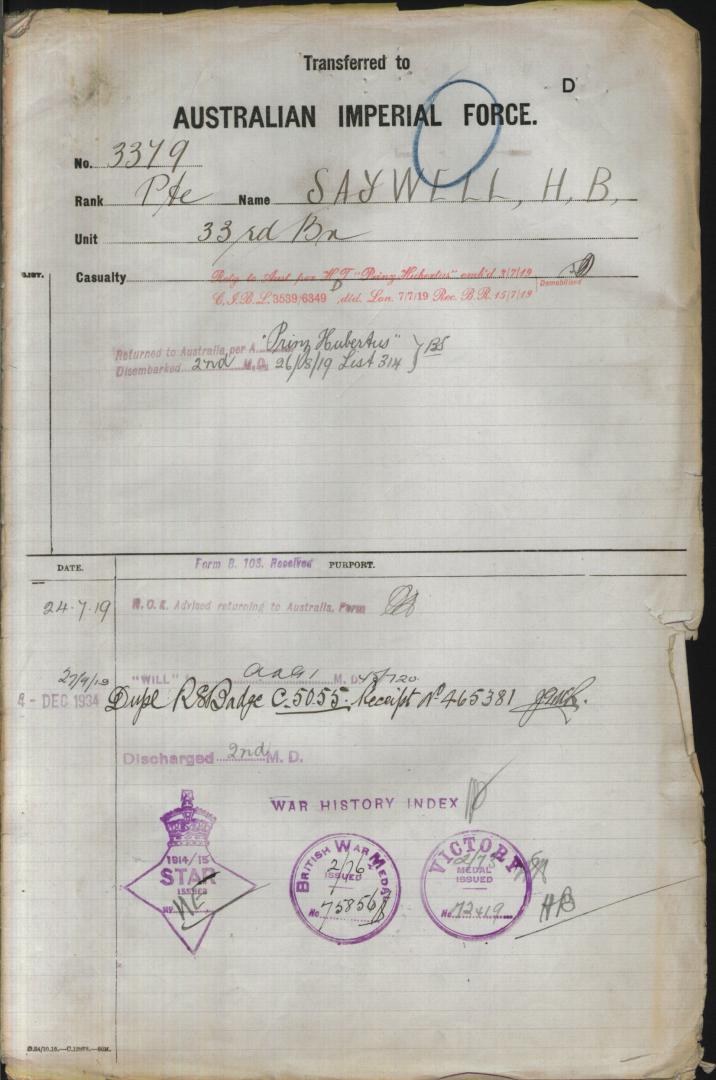 Transferred to
D
AUSTRALIAN IMPERIAL FORCE.
No. 3379
Rank Pte Name SAYWELL, H. B.
Unit 33rd Bn
Casualty Retg to Aust per H.T "Prinz Hubertus" emb'd 3/7/19
Demobilised
C.I.B.L. 3539/6349 D dtd. Lon. 7/7/19 Rec. B.R. 15/7/19
Returned to Australia, per A. "Prinz Hubertus"
Disembarked 2nd M.D. 26/08/19 List 314
DATE. Form B. 103. Received PURPORT.
24.7.19 N.O.K. Advised returning to Australia, Form
"WILL" M.D.
4 - DEC 1934 Dupl RS Badge C.5055. Receipt No 465381
Discharged 2nd M. D.
WAR HISTORY INDEX
1914/15
STAR
ISSUED
No
NE
BRITISH WAR MEDAL
2/76
ISSUED
No 75856
VICTORY
2/73
MEDAL
ISSUED
No 72419
HB